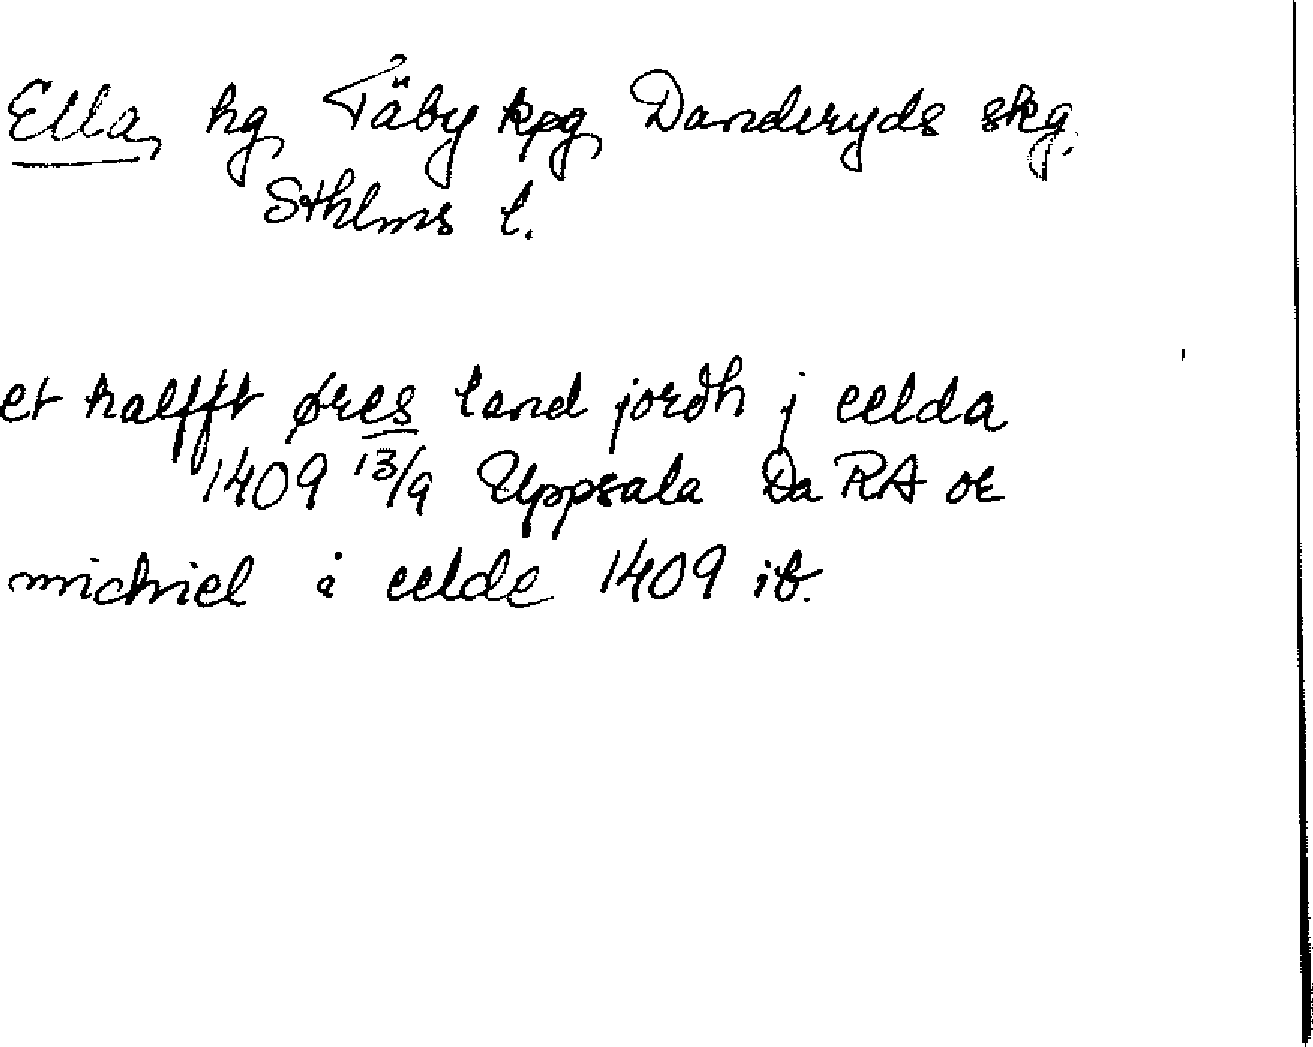 Ella, hg, Täby kpg, Danderyds skg.
Sthlms l.
et halfft øres land jordh j eelda
1409 13/9 Uppsala Da RA or
michiel å eelde 1409 ib.